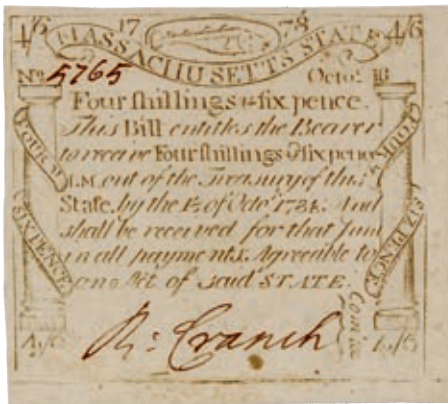 4/6 17 78 4/6
MASSACHUSETTS STATE
No. 5765 Octo.r 18
Four ſhillings & ſix pence.
This Bill entitles the Bearer
to receive Four ſhillings & ſix pence
L.M. out of the Treasury of this
State, by the 1st. of Octo.r 1784. And
shall be received for that Sum
in all payments. Agreeable to
an Act of said STATE.
R: Cranch
Com'tee
FOUR
SIX PENCE
FOUR
SIX PENCE
4/6 4/6